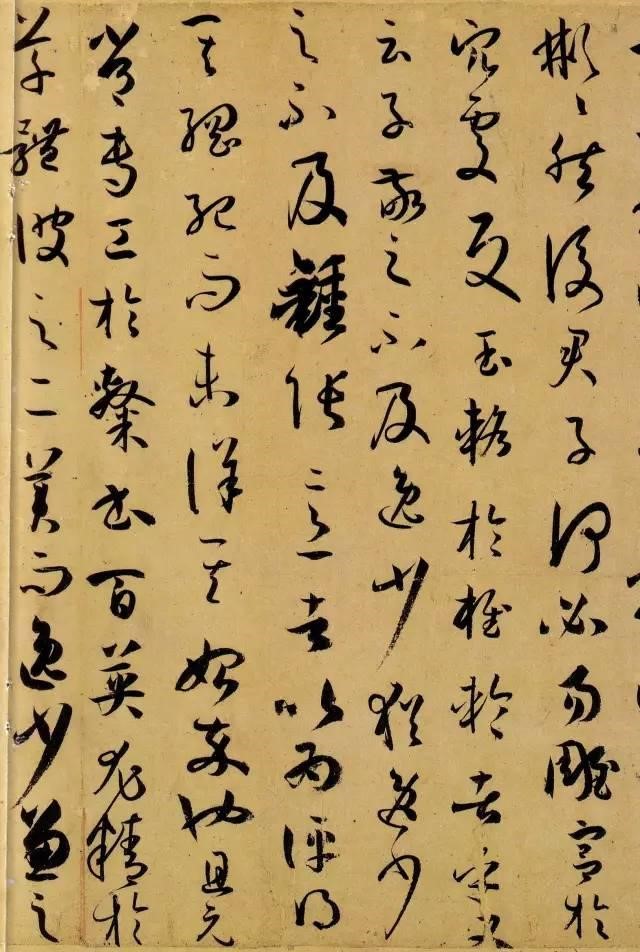 彬々然後君子何必易雕宮於
穴處反玉輅於椎輪者乎又
云子敬之不及逸少猶逸少
之不及鍾張意者以為評得
其綱紀而未詳其始卒也且元
常專工於隸書百英尤精於
草體彼之二美而逸少兼之